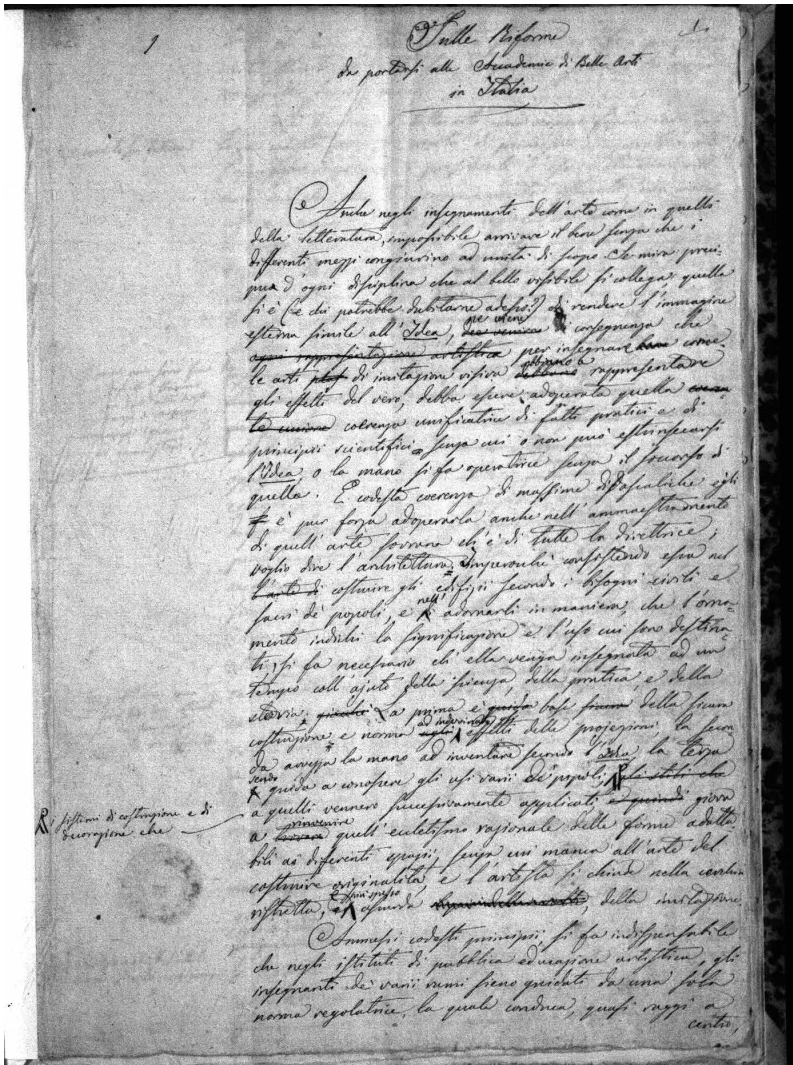 1
1
Sulle Riforme
da portarsi alle Accademie di Belle Arti
in Italia
Anche negli insegnamenti dell'arte come in quelli
della letteratura, impossibile arrivare il bene senza che i
differenti mezzi congiurino ad unità di scopo. La mira preci-
pua d'ogni disciplina che al bello visibile si collega, quella
si è (e chi potrebbe dubitarne adesso?) di rendere l'immagine
esterna simile all'Idea, ne viene conseguenza che
ogni rappresentazione artistica per insegnare bene come
le arti di imitazione visiva abbiano a rappresentare
gli effetti del vero, debba essere adoperata quella
coerenza unificatrice di fatti pratici e di
principii scientifici senza cui o non può estrinsecarsi
l'Idea, o la mano si fa operatrice senza il soccorso di
quella. E codesta coerenza di massime didascaliche egli
è pur forza adoperarla anche nell'ammaestramento
di quell'arte sovrana ch'è di tutte la direttrice,
voglio dire l'architettura. Imperocchè consistendo essa nel
l'arte di costruire gli edifizii secondo i bisogni civili e
sacri de' popoli, e nell' adornarli in maniera che l'orna-
mento indichi la significazione e l'uso cui sono destina-
ti, si fa necessario ch'ella venga insegnata ad un
tempo coll'ajuto della scienza, della pratica e della
storia. La prima è base della sicura
costruzione e norma ad indovinare gli effetti delle projezioni la secon-
da avvezza la mano ad inventare secondo l'idea la terza
guida a conoscere gli usi varii de' popoli, gli stili che
sistemi di costruzione e di
decorazione che
a quelli vennero successivamente applicati, e quindi giova
a rinvenire trovare quell'ecletismo razionale delle forme adatta-
bili ai differenti spazii, senza cui manca all'arte del
costruire originalità, e l'artista si chiude nella cerchia
ristretta, e più spesso della imitazione.
Ammessi codesti principii, si fa indispensabile
che negli istituti di pubblica educazione artistica, gli
insegnanti de' varii rami sieno guidati da una sola
norma regolatrice, la quale conduca, quasi raggi a
centro,